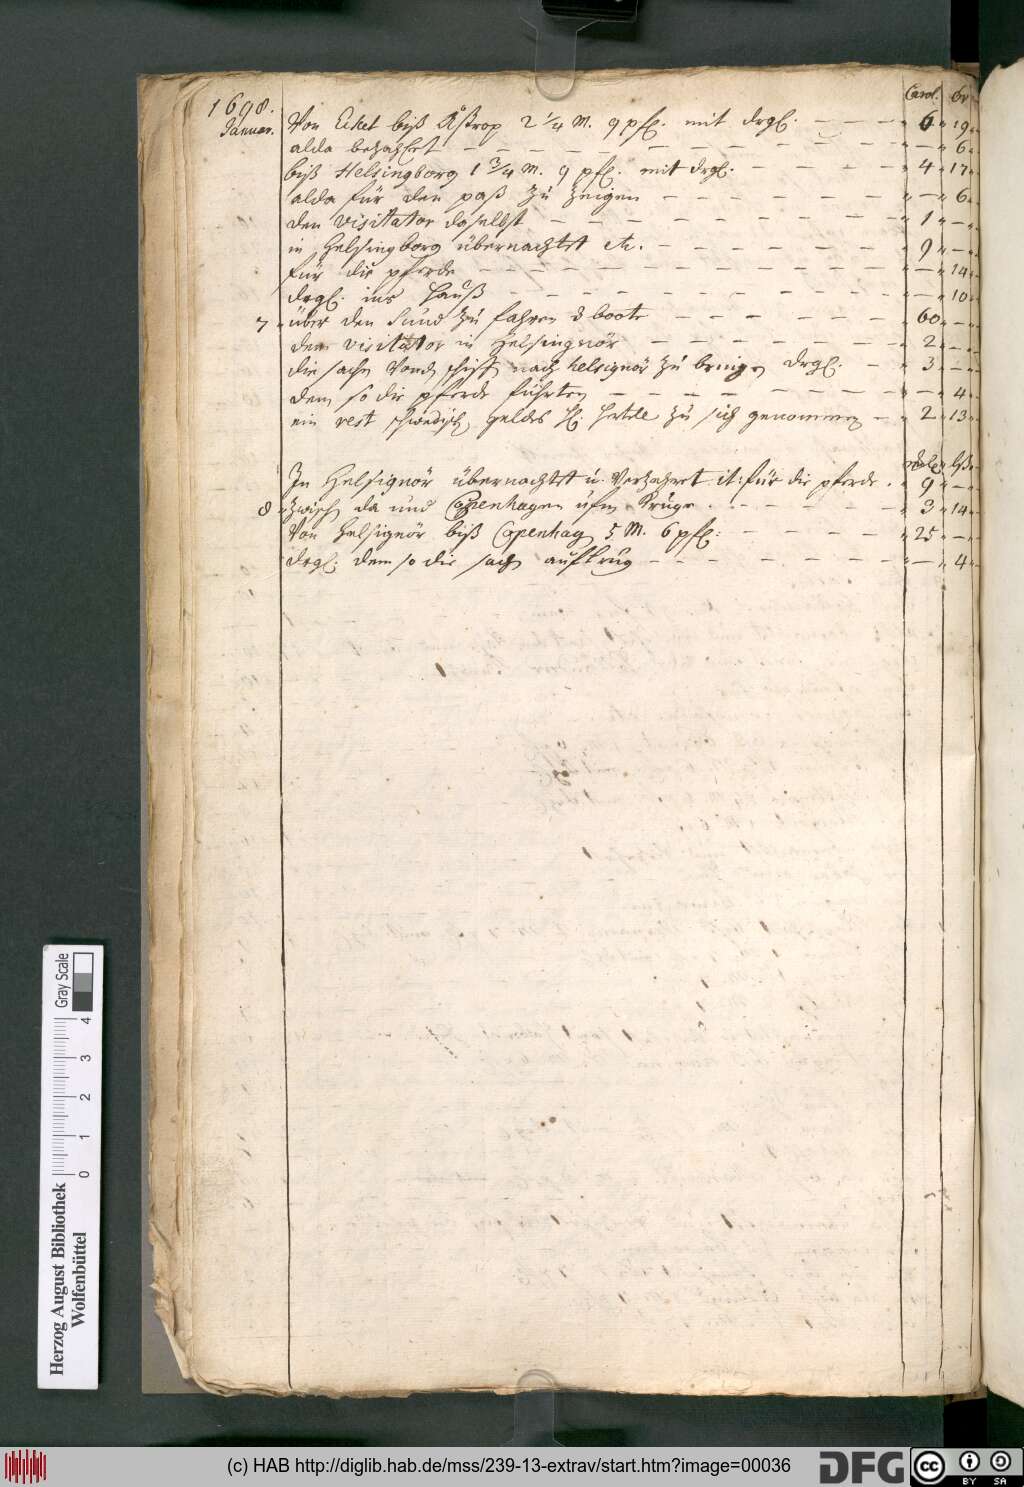 1698. Carol. Ör
Januar. Von Eckel biß Åstrop 2 1/4 M. 9 pfl. mit drgl. 6 19
alda bezahlet 6
biß Helsingborg 1 3/4 M. 9 pfl. mit drgl. 4 17
alda für den paß zu zeigen 6
den visitator daselbst 1
in Helsingborg übernachtet etc. 9
für die pferde 14
drgl. ins Hauß 10
7 über den Sund zu fahren 3 boote 60
dem visitator in Helsingnör 2
die sachen vom schiff nach helsignör zu bringen drgl. 3
dem so die pferde führten 4
ein rest schwedisch geldes zu sich genommen 2 13
In Helsignör übernachtet u. verzehret it: für die pferde. 9
8 zwisch da und Copenhagen ufm Kruge. 3 14
Von Helsignör biß Copenhag 5 M. 6 pfl: 25
drgl. dem so die sachen auftrug 4
Herzog August Bibliothek
Wolfenbüttel
0 1 2 3 4
Gray Scale
(c) HAB http://diglib.hab.de/mss/239-13-extrav/start.htm?image=00036
DFG
cc BY SA